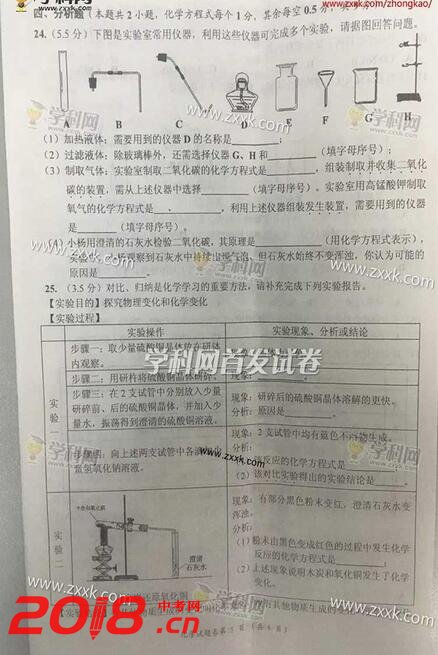 学科网
www.zxxk.com/zhongkao/
四、分析题（本题共2小题，化学方程式每个1分，其余每空0.5分，共
24.（5.5分）下图是实验室常用仪器，利用这些仪器可完成多个实验，请据图回答问题。
A B C D E F G H
（1）加热液体：需要用到的仪器D的名称是
（2）过滤液体：除玻璃棒外，还需选择仪器G、H和 （填字母序号）；
（3）制取气体：实验室制取二氧化碳的化学方程式是 ，组装制取并收集二氧化
碳的装置，需从上述仪器中选择 （填字母序号）。实验室用高锰酸钾制取
氧气的化学方程式是 ，利用上述仪器组装发生装置，需要用到的仪器
是 （填字母序号）。
（4）小杨用澄清的石灰水检验二氧化碳，其原理是 （用化学方程式表示），
观察到石灰水中持续出现气泡，但石灰水始终不变浑浊，你认为可能的
原因是
25.（3.5分）对比、归纳是化学学习的重要方法，请补充完成下列实验报告。
【实验目的】探究物理变化和化学变化
【实验过程】
实验操作 实验现象、分析或结论
实验一
步骤一：取少量硫酸铜晶体放在研钵
内观察。
步骤二：用研杵将硫酸铜晶体研碎。 现象：
步骤三：在2支试管中分别放入少量
研碎前、后的硫酸铜晶体，并加入少
量水，振荡得到澄清的硫酸铜溶液。
现象：研碎后的硫酸铜晶体溶解的更快。
分析：原因是
步骤四：向上述两支试管中各
量氢氧化钠溶液。
现象：2支试管中均有蓝色 生成。
分析：
该反应的化学方程式是
（2）该对比实验得出的实验结论是
实验二
澄清
石灰水
现象：有部分黑色粉末变红，澄清石灰水变
浑浊。
分析：
（1）粉末由黑色变成红色的过程中发生化学
反应的化学方程式是
（2）上述现象说明木炭和氧化铜发生了化学
变化。
学科网首发试卷
www.zxxk.com
2018.cn
中考网